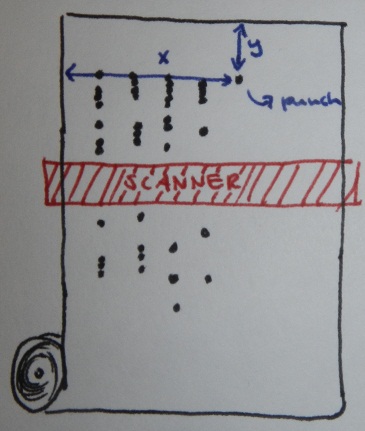 y
x
punch
SCANNER